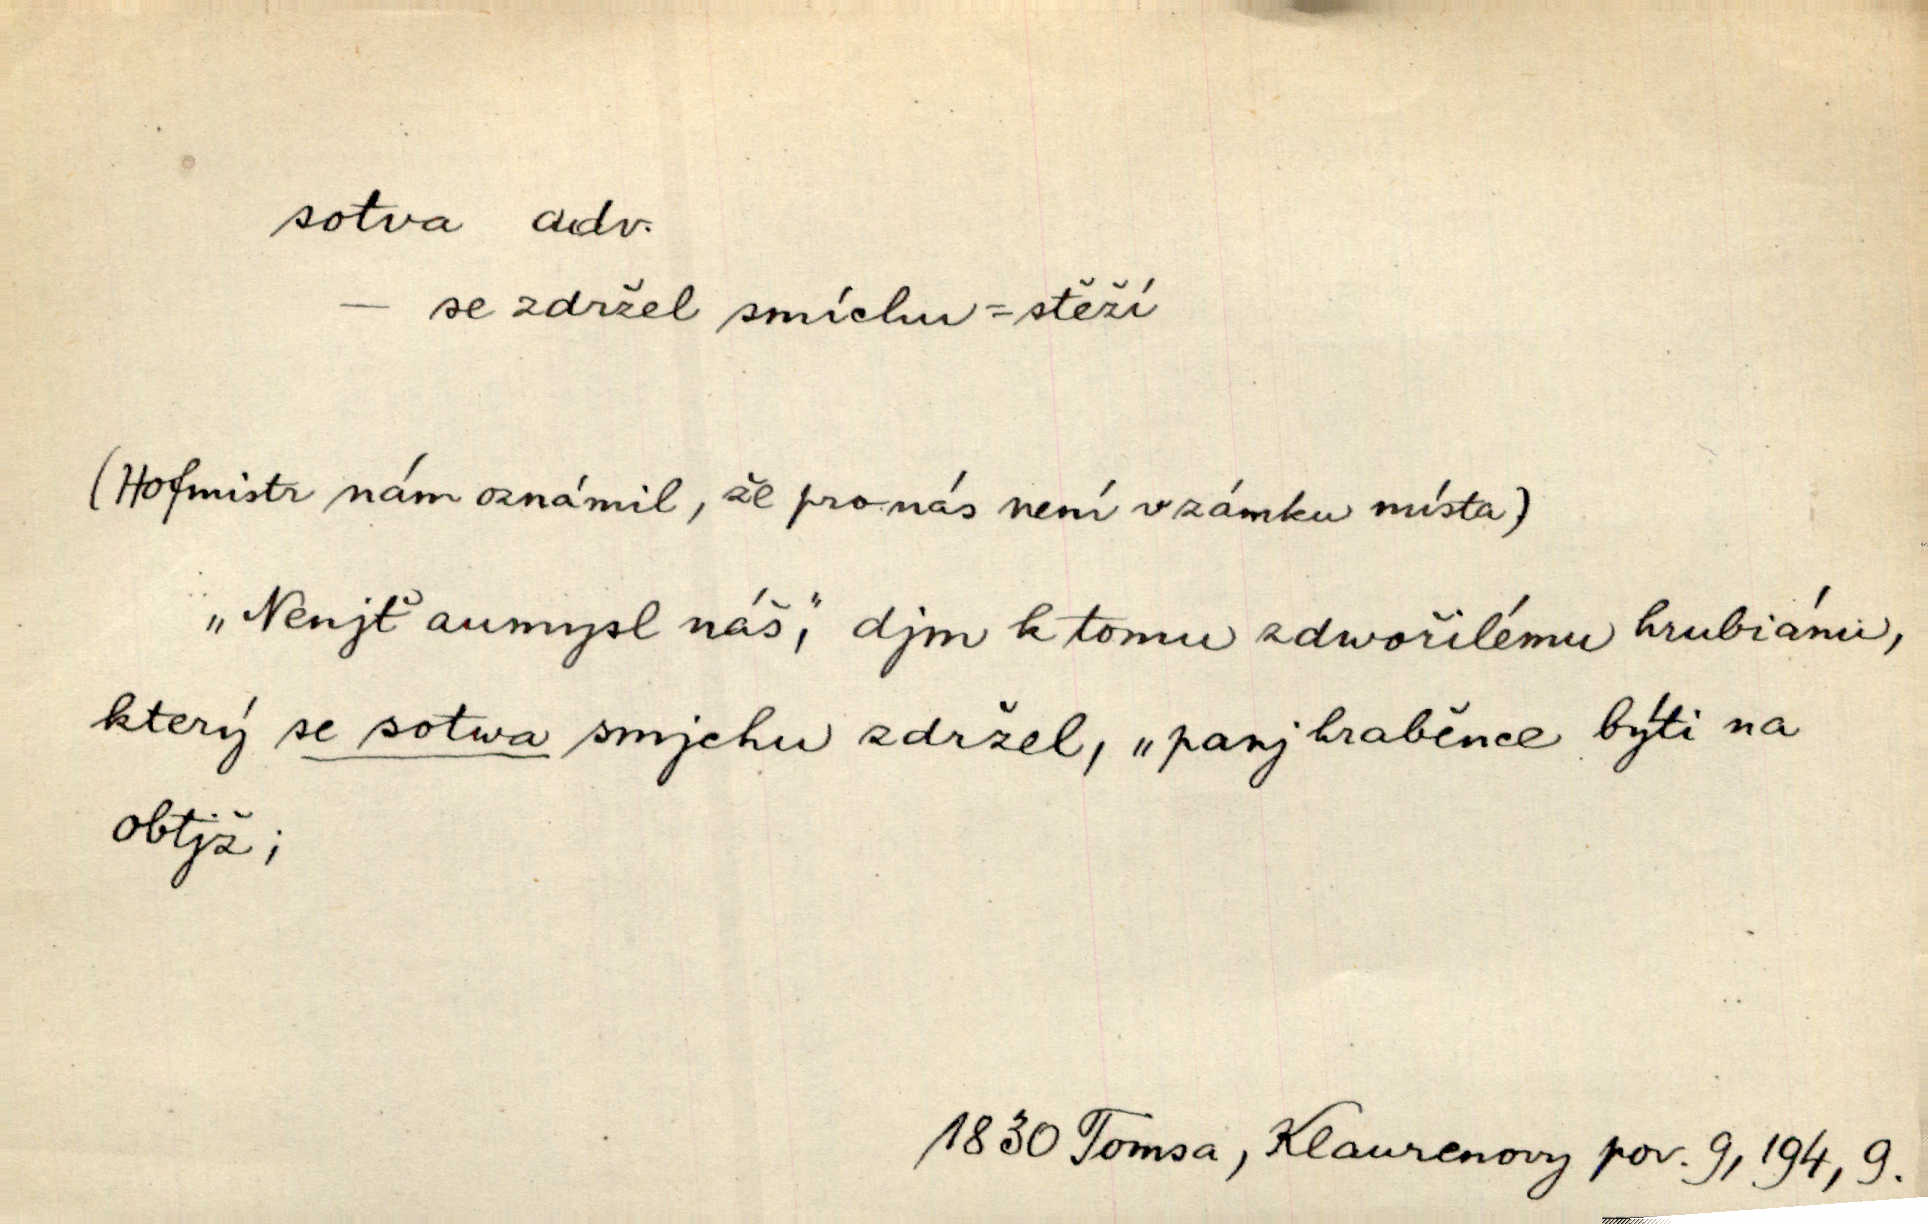 sotva adv.
— se zdržel smíchu = stěží
(Hofmistr nám oznámil, že pro nás není v zámku místa)
„Nenjť aumysl náš," djm k tomu zdwořilému hrubiánu,
který se sotwa smjchu zdržel, „panj hraběnce býti na
obtjž;
1830 Tomsa, Klaurenovy pov. 9, 194, 9.